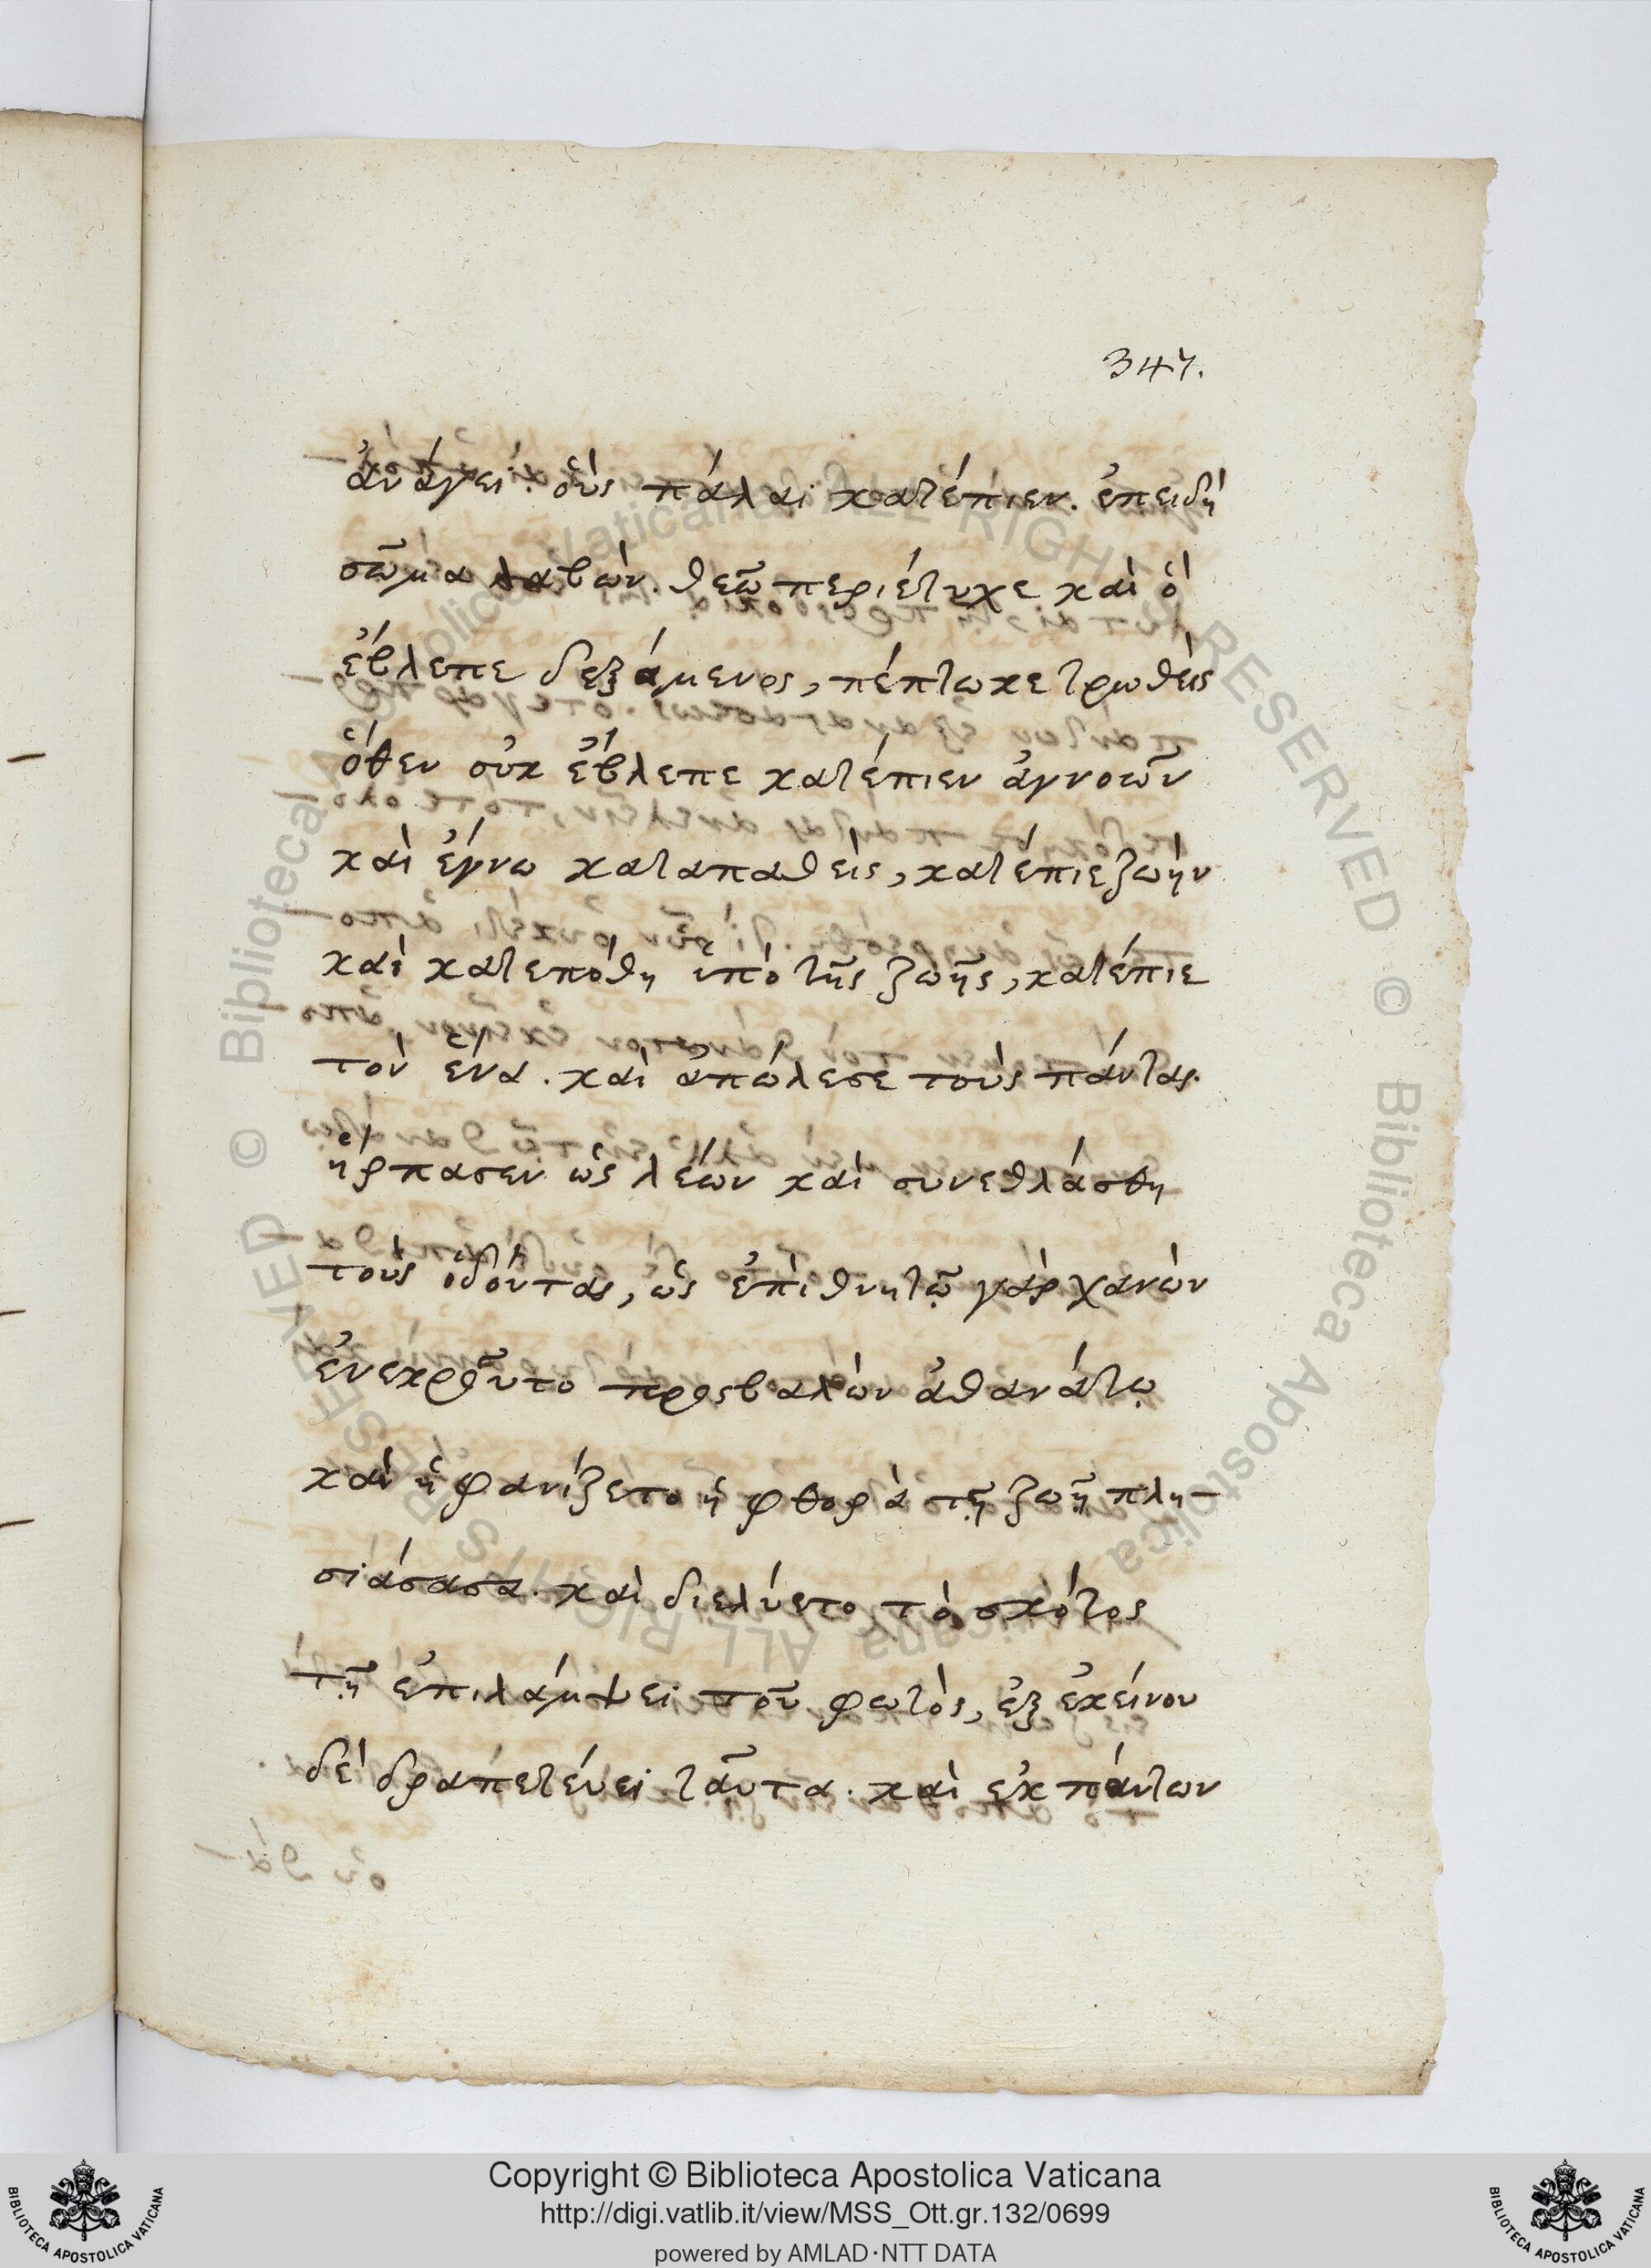 347.
ἀνάγει· οὓς πάλαι κατέπιεν. ἐπειδὴ
σῶμα λαβὼν. θεῶ περιέτυχε καὶ ὁ
ἔβλεπε δεξάμενος, πέπτωκε τρωθεὶς
ὅθεν οὐκ ἔβλεπε κατέπιεν ἀγνοῶν
καὶ ἔγνω καταπαθεὶς, κατέπιε ζωὴν
καὶ κατεπόθη ὑπὸ τῆς ζωῆς, κατέπιε
τὸν ἕνα. καὶ ἀπώλεσε τοὺς πάντας.
ἥρπασεν ὡς λέων καὶ συνεθλάσθη
τοὺς ὀδόντας, ὡς ἐπὶ θνητῷ γὰρ χανὼν
ἐνεκροῦτο προσβαλὼν ἀθανάτῳ
καὶ ἠφανίζετο ἡ φθορὰ τῇ ζωῇ πλη-
σιάσασα. καὶ διελύετο τὸ σκότος
τῇ ἐπιλάμψει τοῦ φωτὸς, ἐξ ἐκείνου
δὲ δραπετεύει ταῦτα. καὶ ἐκ πάντων
Copyright © Biblioteca Apostolica Vaticana
http://digi.vatlib.it/view/MSS_Ott.gr.132/0699
powered by AMLAD·NTT DATA